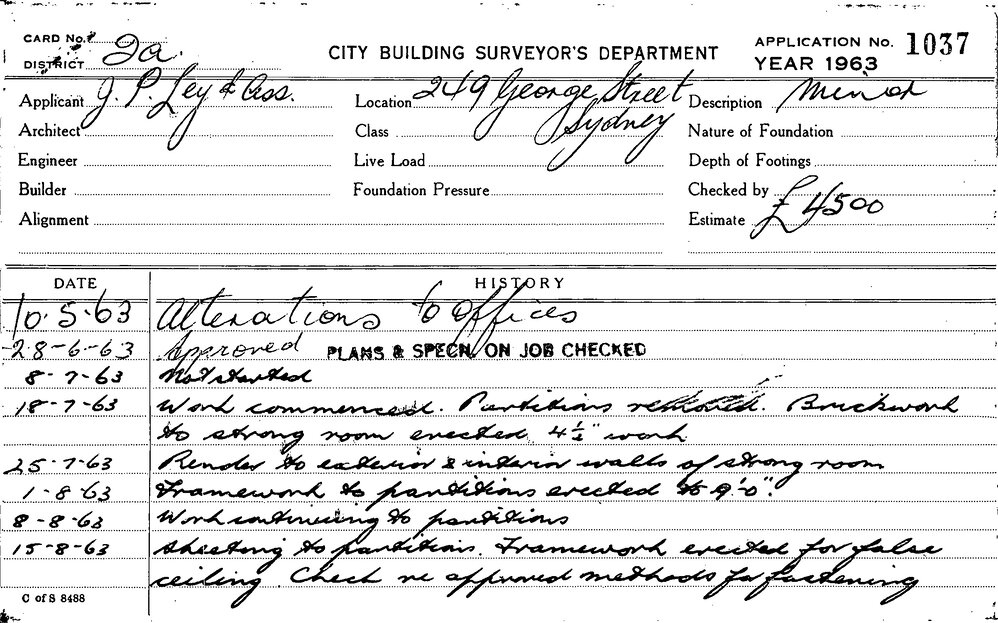 CARD No. 2a.
DISTRICT
CITY BUILDING SURVEYOR'S DEPARTMENT
APPLICATION No. 1037
YEAR 1963
Applicant J. P. Ley & Ass.
Location 249 George Street
Sydney
Description Minor
Architect
Class
Nature of Foundation
Engineer
Live Load
Depth of Footings
Builder
Foundation Pressure
Checked by
Alignment
Estimate £4500
DATE HISTORY
10.5.63 Alterations to Offices
28-6-63 Approved PLANS & SPECN. ON JOB CHECKED
8-7-63 Not started
18-7-63 Work commenced. Partitions removed. Brickwork
to strong room erected 4½" work
25-7-63 Render to exterior & interior walls of strong room
1-8-63 Framework to partitions erected to 9'-0".
8-8-63 Work continuing to partitions
15-8-63 Sheeting to partitions. Framework erected for false
ceiling. Check re approved methods for fastening
C of S 8488